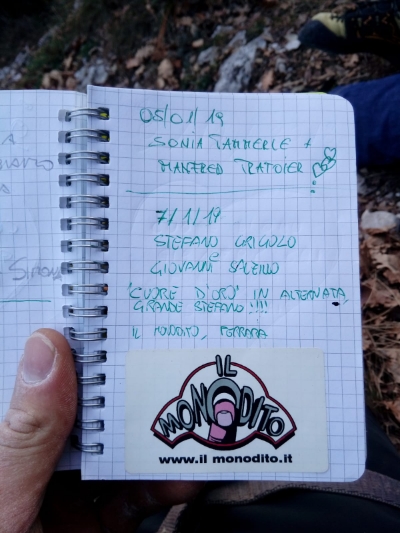 05/01/19
SONIA +
MANFRED
7/1/19
STEFANO GRIGOLO
E
GIOVANNI
"CUORE D'ORO" IN ALTERNATA,
GRANDE STEFANO!!!!
IL MONODITO, FERRARA
IL
MONODITO
www.il monodito.it